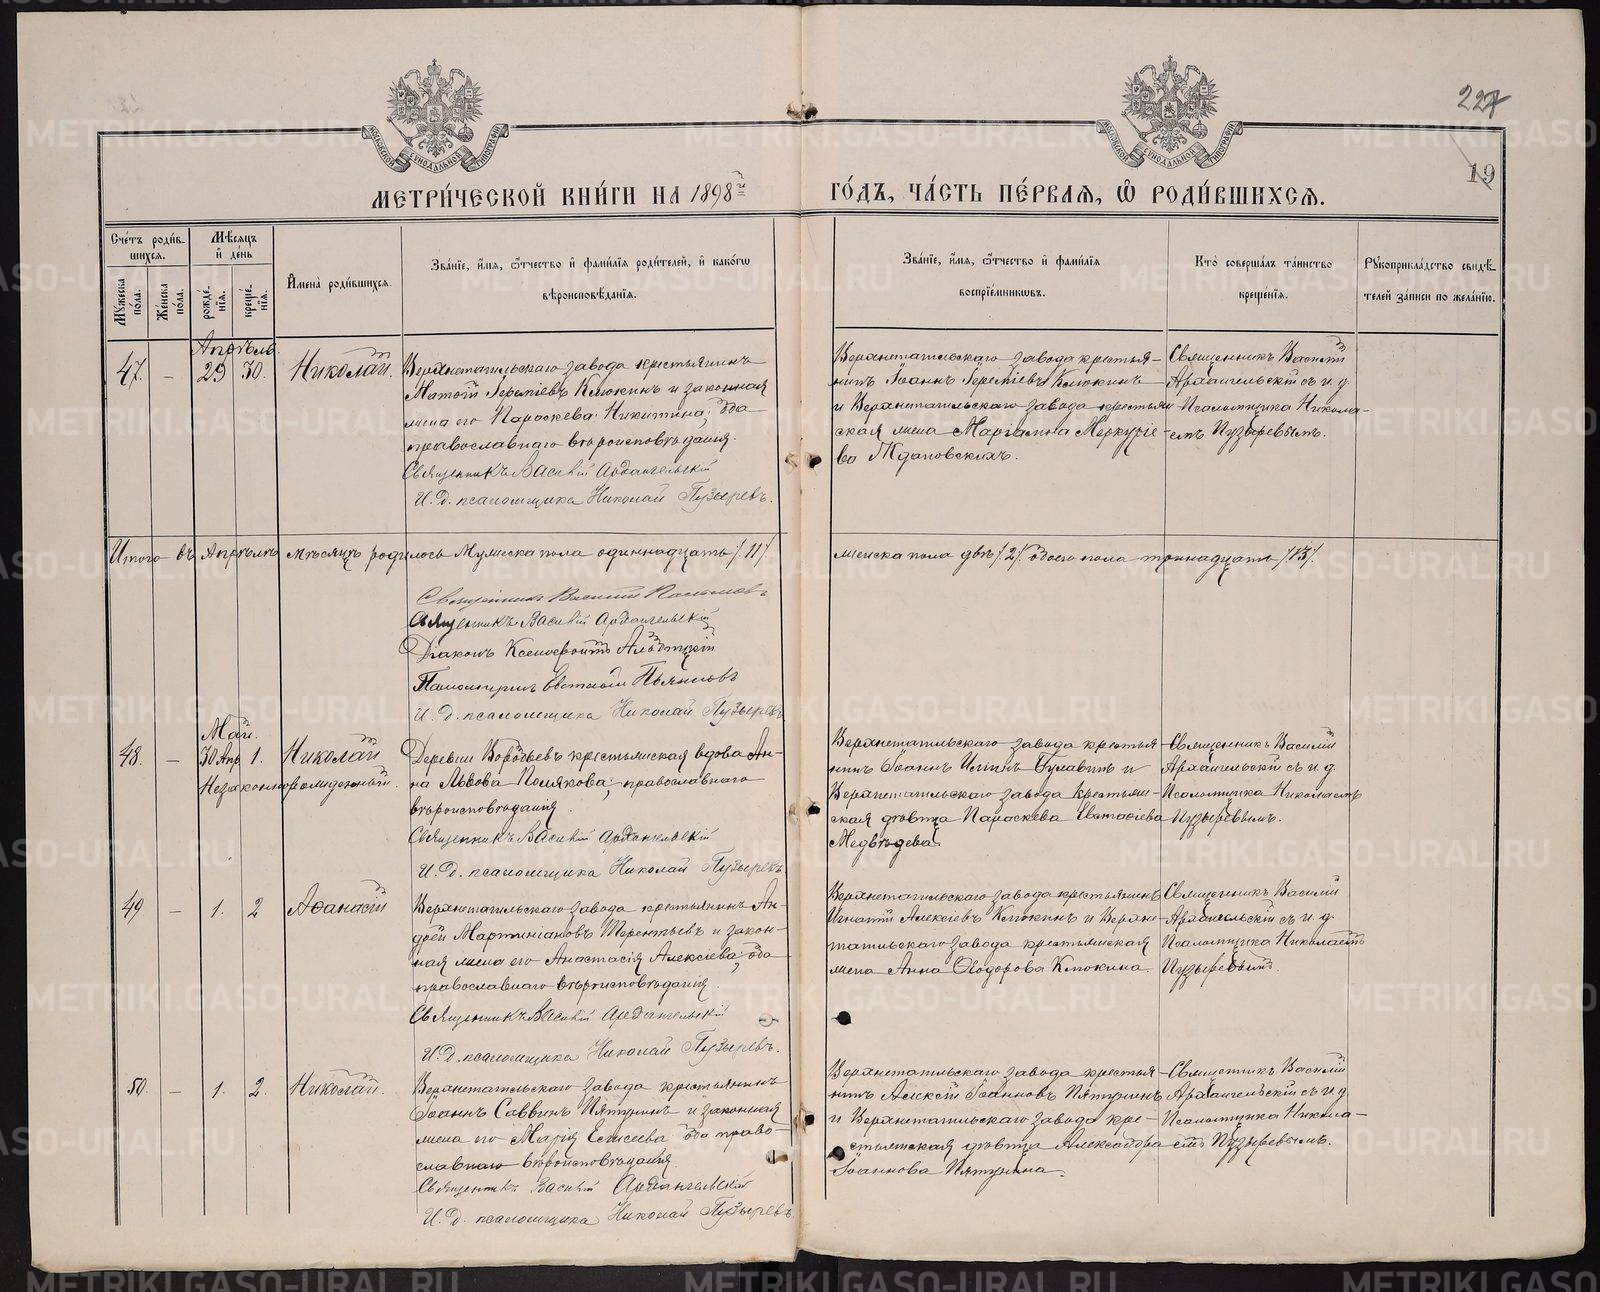 227
19
МЕТРИ́ЧЕСКОЙ КНИ́ГИ НА 1898й
ГО́ДЪ, ЧА́СТЬ ПЕ́РВАЯ, Ѿ РОДИ́ВШИХСЯ.
Сче́тъ роди́в-
шихся.
Мѣ́сяцъ
и де́нь
Мужеска пола.
Женска пола.
рожде-
нія.
креще-
нія.
Имена̀ роди́вшихся.
Зва́ніе, и́мя, ѻ́тчество и фами́лія роди́телей, и како́гѡ
вѣроисповѣ́данія.
Зва́ніе, и́мя, ѻ́тчество и фами́лія
воспріе́мникѡвъ.
Кто̀ соверша́лъ та́инство
креще́нія.
Рꙋкоприкла́дство свидѣ́-
телей за́писи по жела́нію.
Апрѣль
47. — 29 30. Николай.
Верхнетагильскаго завода крестьянинъ
Клюкинъ и законная
жена его Параскева Никитина, оба
православнаго вѣроисповѣданія.
Священникъ Василій Архангельскій
И. д. псаломщика Николай Пузыревъ.
Верхнетагильскаго завода крестья-
нинъ Іоаннъ Клюкинъ
и Верхнетагильскаго завода крестьян
ская жена Маріамна Меркуріе-
ва Ждановскихъ.
Священникъ Василій
Архангельскій съ и. д.
Псаломщика Никола-
емъ Пузыревымъ.
Итого въ Апрѣлѣ мѣсяцѣ родилось Мужеска пола одиннадцать /11/. женска пола двѣ /2/. обоего пола тринадцать /13/.
Священникъ Василій
Священникъ Василій Архангельскій
Діаконъ Ксенофонтъ
И. д. псаломщика Николай Пузыревъ
Май.
48. — 30 Апр. 1. Николай
Незаконнорожденный.
Деревни Воробьевъ крестьянская вдова Ан-
на Львова Полякова, православнаго
вѣроисповѣданія.
Священникъ Василій Архангельскій
И. д. псаломщика Николай Пузыревъ
Верхнетагильскаго завода крестья-
нинъ Іоаннъ Булавинъ и
Верхнетагильскаго завода крестьян-
ская дѣвица Параскева Евстафіева
Медвѣдева.
Священникъ Василій
Архангельскій съ и. д.
Псаломщика Николаемъ
Пузыревымъ.
49 — 1. 2 Аѳанасій
Верхнетагильскаго завода крестьянинъ Ан-
дрей Мартиніановъ Терентьевъ и закон-
ная жена его Анастасія Алексіева, оба
православнаго вѣроисповѣданія.
Священникъ Василій Архангельскій
И. д. псаломщика Николай Пузыревъ.
Верхнетагильскаго завода крестьянинъ
Игнатій Алексіевъ Клюкинъ и Верхне-
тагильскаго завода крестьянская
жена Анна Ѳеодорова Клюкина.
Священникъ Василій
Архангельскій съ и. д.
Псаломщика Николаемъ
Пузыревымъ.
50. — 1. 2. Николай.
Верхнетагильскаго завода крестьянинъ
Іоаннъ Саввинъ Пятунинъ и законная
жена его Марія Елисеева, оба право-
славнаго вѣроисповѣданія
Священникъ Василій Архангельскій
И. д. псаломщика Николай Пузыревъ.
Верхнетагильскаго завода крестья-
нинъ Алексій Іоанновъ Пятунинъ
и Верхнетагильскаго завода кре-
стьянская дѣвица Александра
Іоаннова Пятунина.
Священникъ Василій
Архангельскій съ и. д.
Псаломщика Никола-
емъ Пузыревымъ.
METRIKI.GASO-URAL.RU